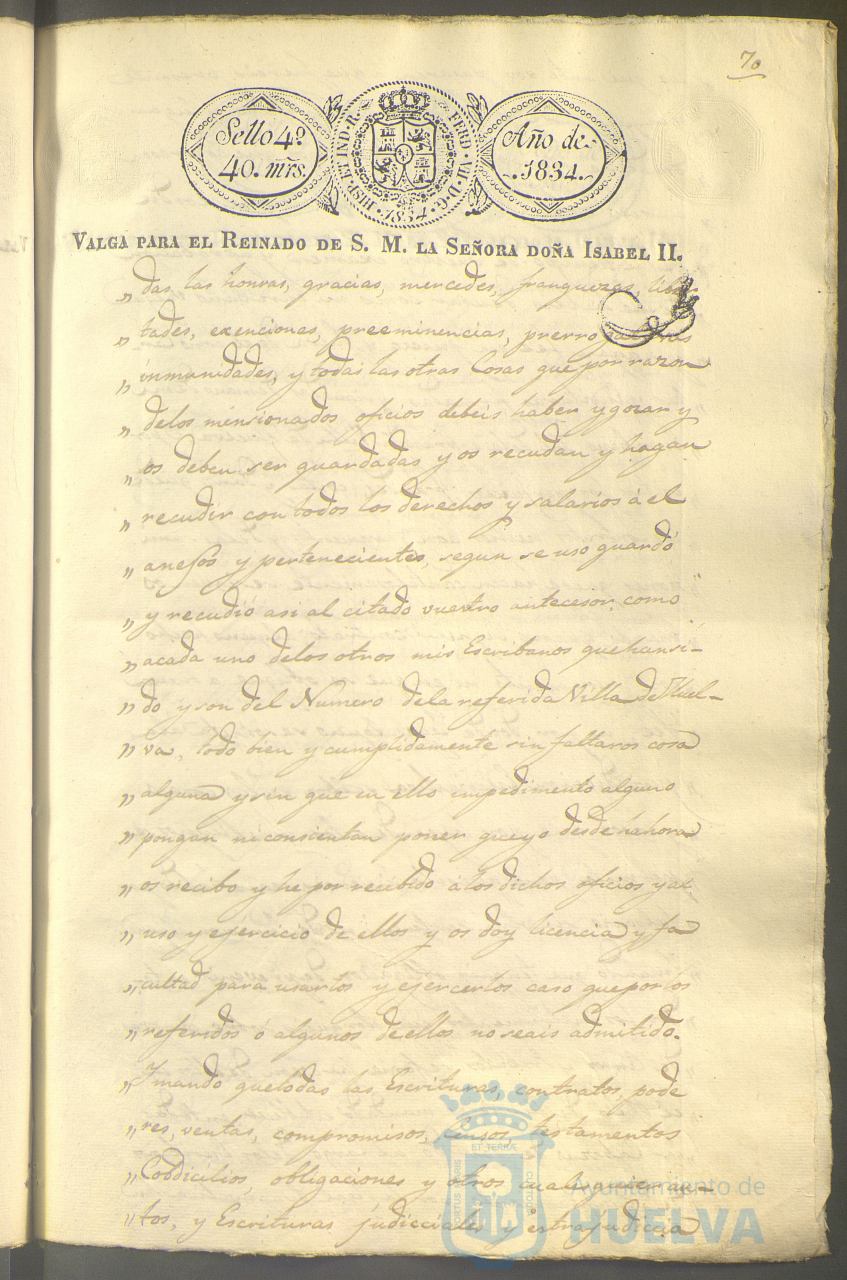 70
Sello 4º
40. mrs.
HISP. ET IND. R. FERD. VII. D. G.
1834
Año de
1834.
VALGA PARA EL REINADO DE S. M. LA SEÑORA DOÑA ISABEL II.
„ das las honras, gracias, mercedes, franquezas, liber-
„ tades, exenciones, preeminencias, prerrogativas
„ inmunidades, y todas las otras Cosas que por razon
„ delos mensionados oficios debeis haber y gozar y
„ os deben ser guardadas y os recudan y hagan
„ recudir con todos los derechos y salarios á el
„ anesos y pertenecientes, segun se uso guardó
„ y recudió asi al citado vuestro antecesor, como
„ acada uno delos otros mis Escribanos quehansi-
„ do y son del Numero dela referida Villa de Huel-
„ va, todo bien y cumplidamente sin faltaros cosa
„ alguna y sin que en ello impedimento alguno
„ pongan ni consientan poner que yo desde hahora
„ os recibo y he por recibido á los dichos oficios y al
„ uso y ejercicio de ellos y os doy licencia y fa
„ cultad para usarlos y ejercerlos caso que por los
„ referidos ó algunos de ellos no seais admitido.
„ Y mando quetodas las Escrituras, contratos, pode
„ res, ventas, compromisos, Censos, testamentos
„ Cobdicilios, obligaciones y otros cualesquier au-
„ tos, y Escrituras judiciales y estrajudicia
ET TERRÆ
PORTUS MARIS
CUSTODIA
Ayuntamiento de
HUELVA